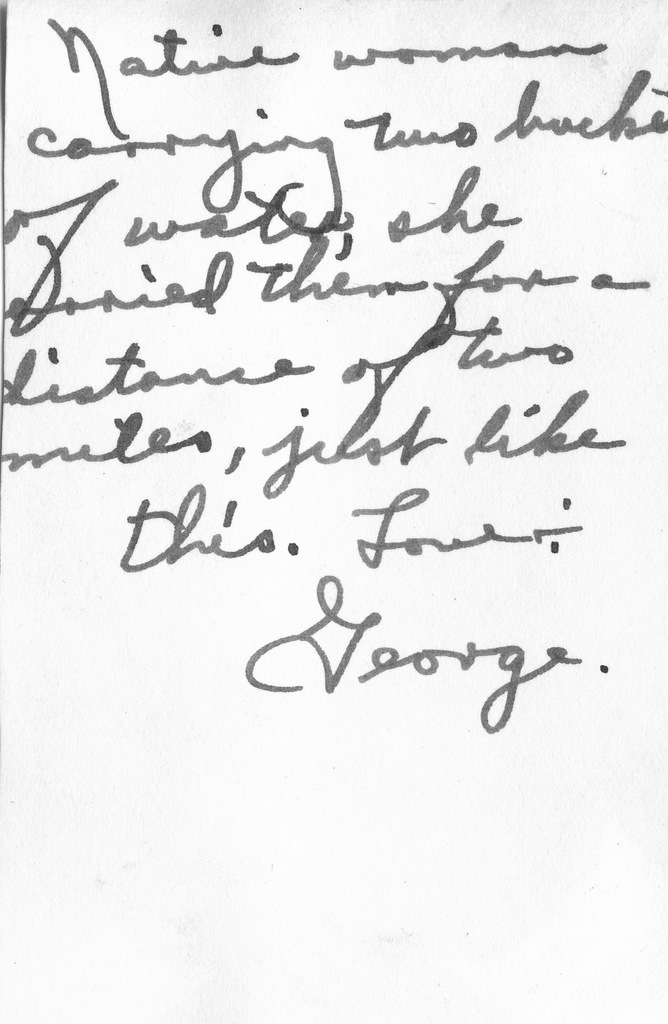 Native woman
carrying two bucket
of water, she
carried them for a
distance of two
miles, just like
this. Love:-
George.